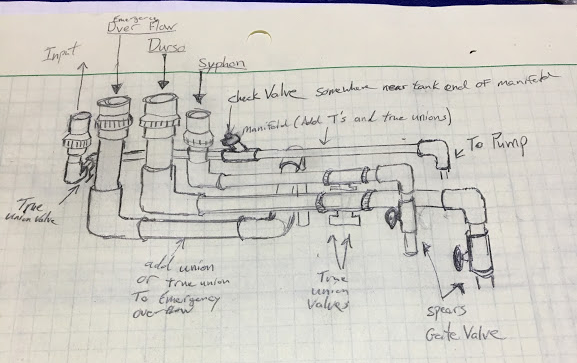 Input
Emergency
Over Flow
Durso
Syphon
check Valve somewhere near tank end of manifold
manifold (Add T's and true unions)
To Pump
True
union valve
add union
or true union
To Emergency
overflow
True
union
Valves
Spears
Gate Valve